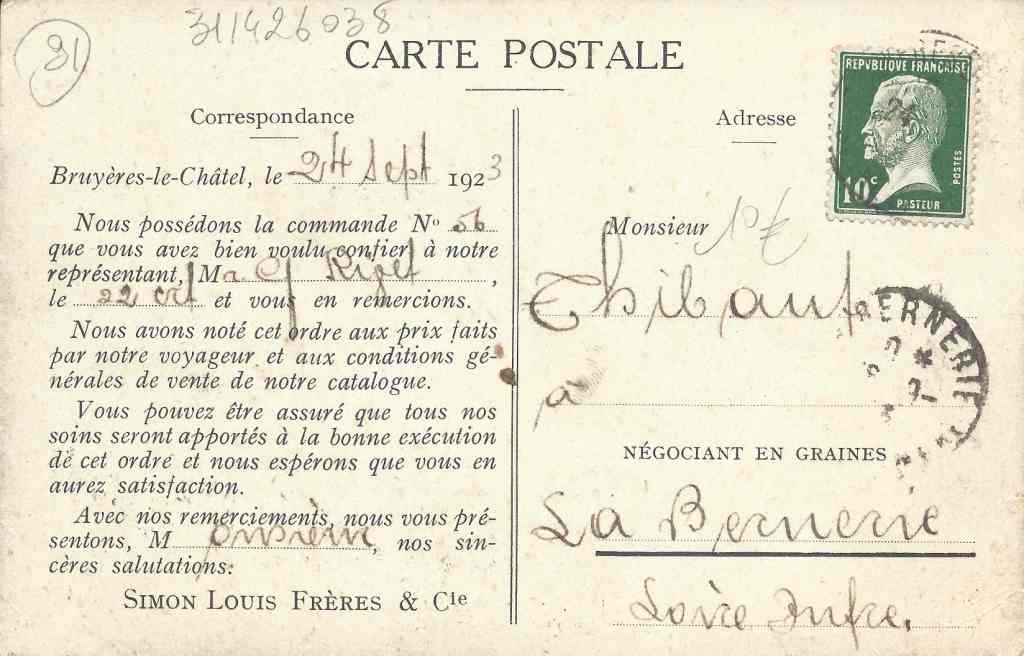 311426038
91
CARTE POSTALE
Correspondance
Bruyères-le-Châtel, le 24 Sept 1923
Nous possédons la commande Nº 56
que vous avez bien voulu confier à notre
représentant, M
le 22 crt et vous en remercions.
Nous avons noté cet ordre aux prix faits
par notre voyageur et aux conditions gé-
nérales de vente de notre catalogue.
Vous pouvez être assuré que tous nos
soins seront apportés à la bonne exécution
de cet ordre et nous espérons que vous en
aurez satisfaction.
Avec nos remerciements, nous vous pré-
sentons, Monsieur, nos sin-
cères salutations.
SIMON LOUIS FRÈRES & Cie
Adresse
REPUBLIQUE FRANÇAISE
POSTES
10c
PASTEUR
Monsieur 10 €
Thibaut
BERNERIE
à
NÉGOCIANT EN GRAINES
La Bernerie
Loire Infre.